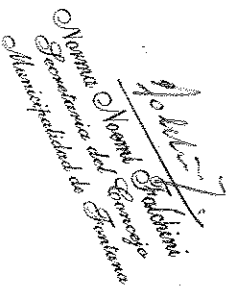 Norma Noemi Falchini
Secretaria del Concejo
Municipalidad de Fontana